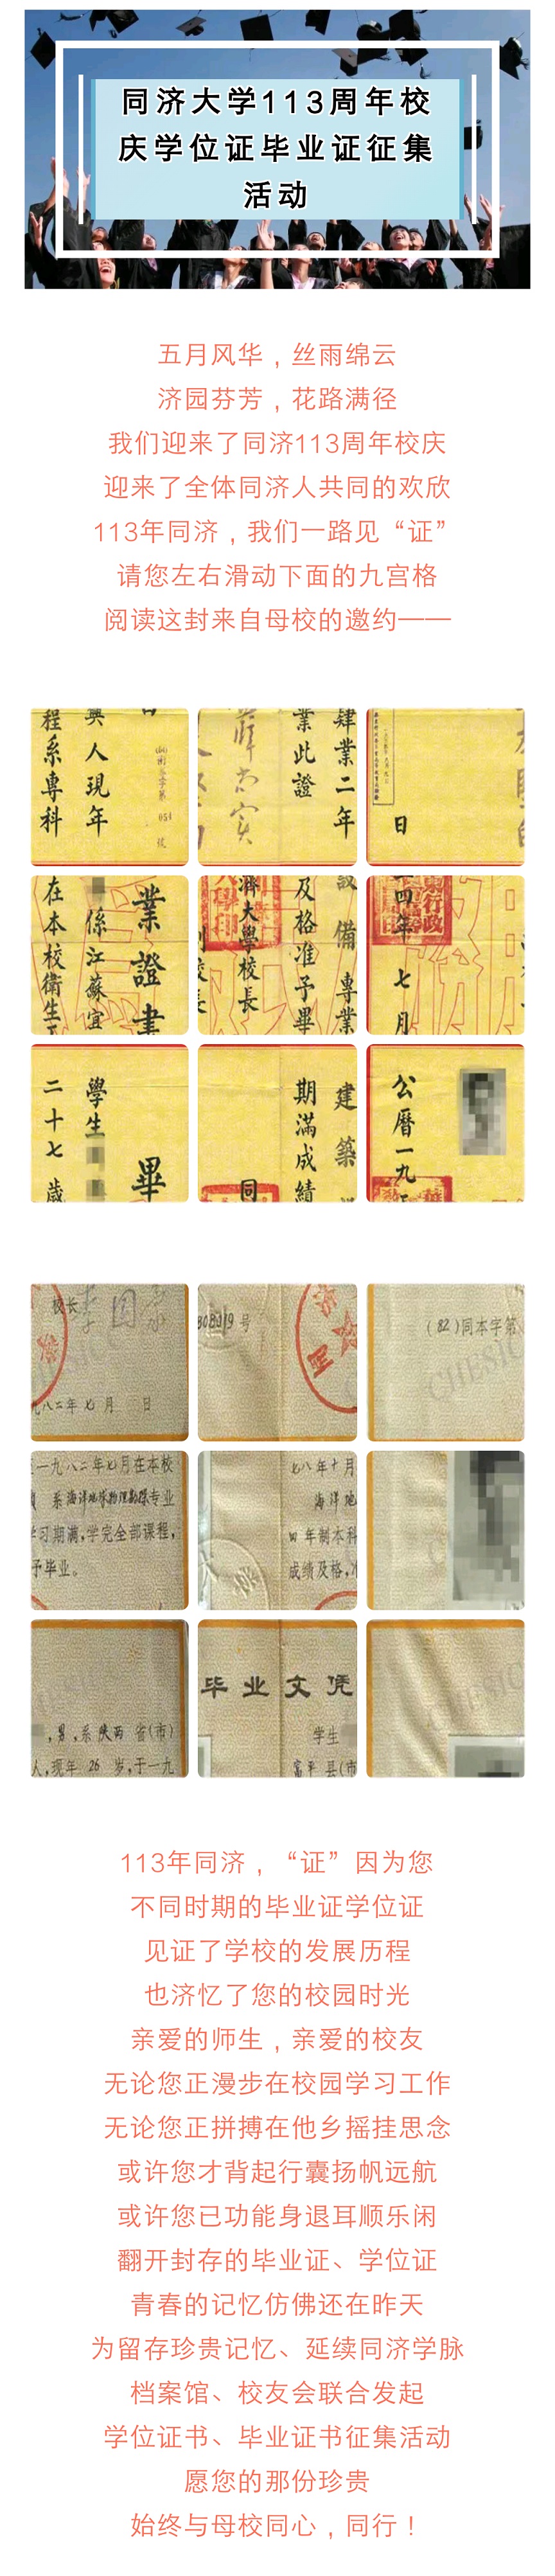 同济大学113周年校
庆学位证毕业证征集
活动
五月风华，丝雨绵云
济园芬芳，花路满径
我们迎来了同济113周年校庆
迎来了全体同济人共同的欢欣
113年同济，我们一路见“证”
请您左右滑动下面的九宫格
阅读这封来自母校的邀约——
人现年
程系專科
肄業二年
業此證
日
業證書
係江蘇宜
在本校衛生工
設備專業
及格准予畢
濟大學校長
四年七月
學生
二十七歲
畢
建築
期滿成績
同
公曆一九五
校长
九八二年七月 日
808019号
(82)同本字第
一九八二年七月在本校
系海洋地球物理勘探专业
学习期满,学完全部课程,
予毕业。
七八年十月
海洋地
四年制本科
成绩及格,准
,男,系陕西省(市)
人,现年26岁,于一九
毕业文凭
学生
富平县(市
113年同济，“证”因为您
不同时期的毕业证学位证
见证了学校的发展历程
也济忆了您的校园时光
亲爱的师生，亲爱的校友
无论您正漫步在校园学习工作
无论您正拼搏在他乡摇挂思念
或许您才背起行囊扬帆远航
或许您已功能身退耳顺乐闲
翻开封存的毕业证、学位证
青春的记忆仿佛还在昨天
为留存珍贵记忆、延续同济学脉
档案馆、校友会联合发起
学位证书、毕业证书征集活动
愿您的那份珍贵
始终与母校同心，同行！